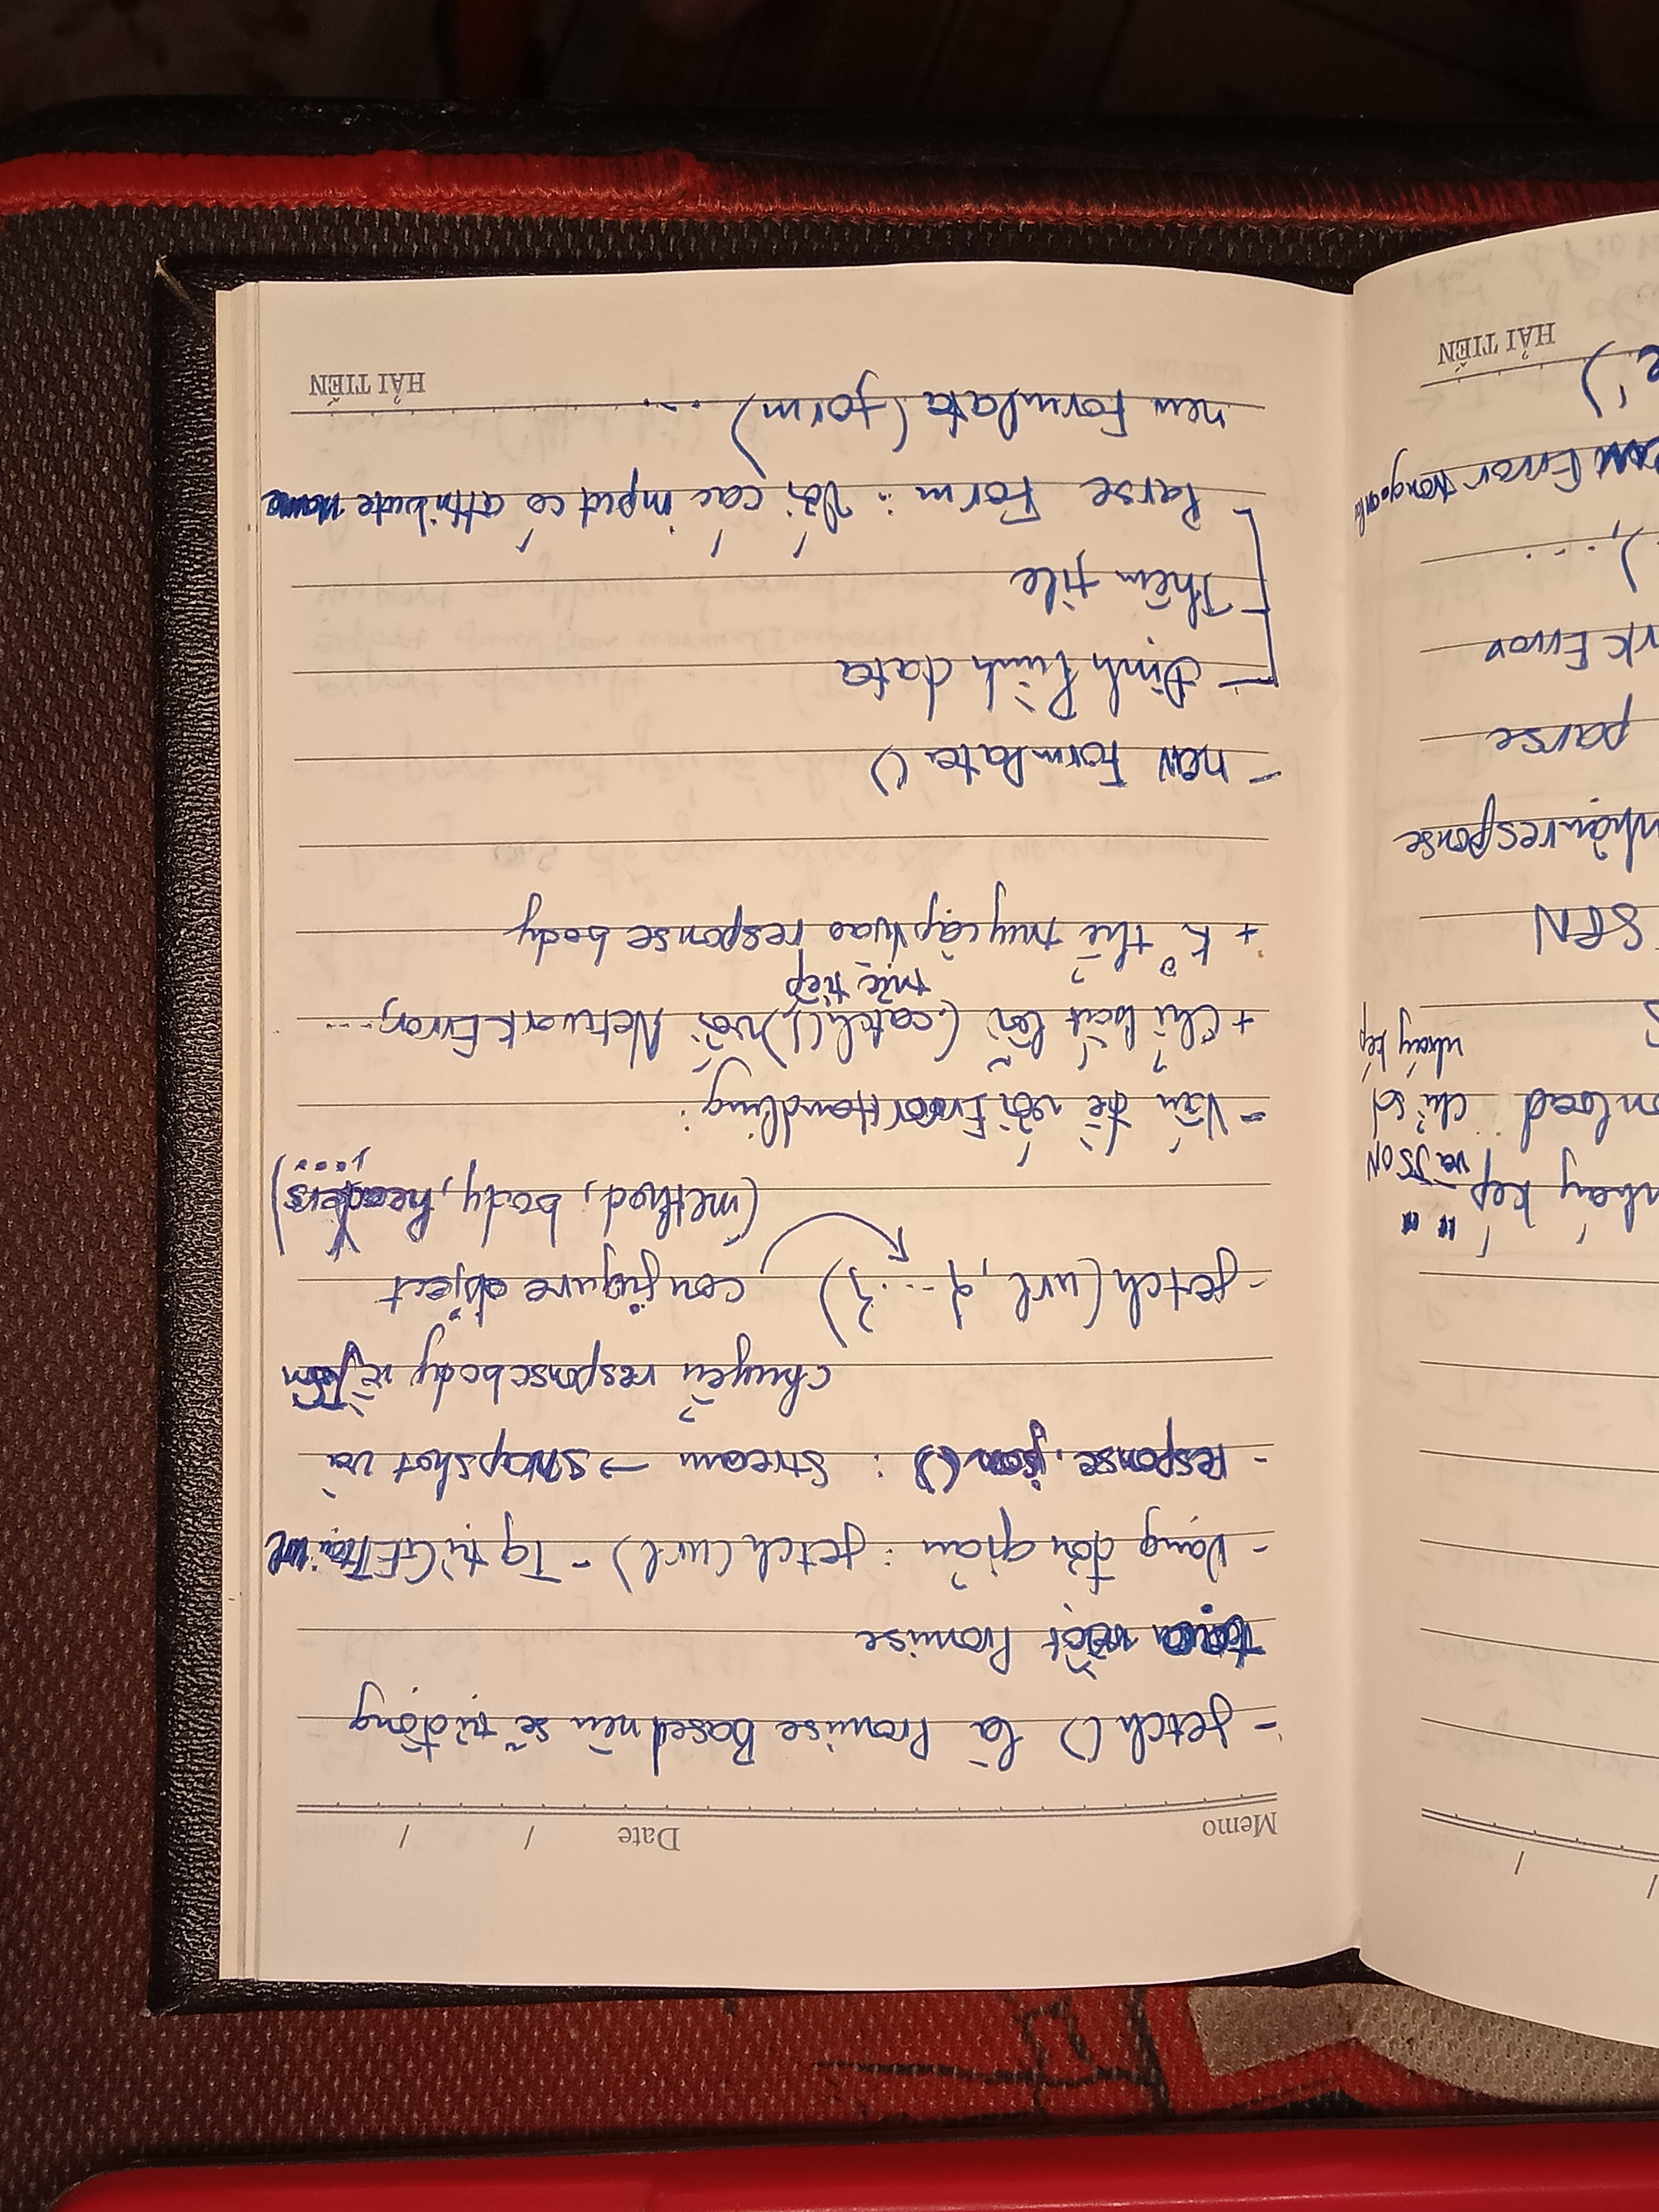 / /
nháy kép " "
và JSON
onload chỉ sd
nháy kép
S
nhận response
parse
rk Error
),...
Error trong
e')
HẢI TIẾN
Memo Date / /
- fetch() là Promise Based nên sẽ tự động
tạo một Promise
- Dạng đơn giản : fetch(url) - Tg tự GET tại url
- response.json() : Stream → snapshot và
chuyển response body về JSon
- fetch(url, {...}) configure object
(method, body, headers,....)
- Vấn đề với Error Handling:
+ Chỉ bắt lỗi (.catch()) với Network Error,...
trực tiếp
+ K° thể truy cập vào response body
- new FormData()
- Định hình data
- Thêm file
- Parse Form : Với các input có attribute name
new FormData(form) ...
HẢI TIẾN